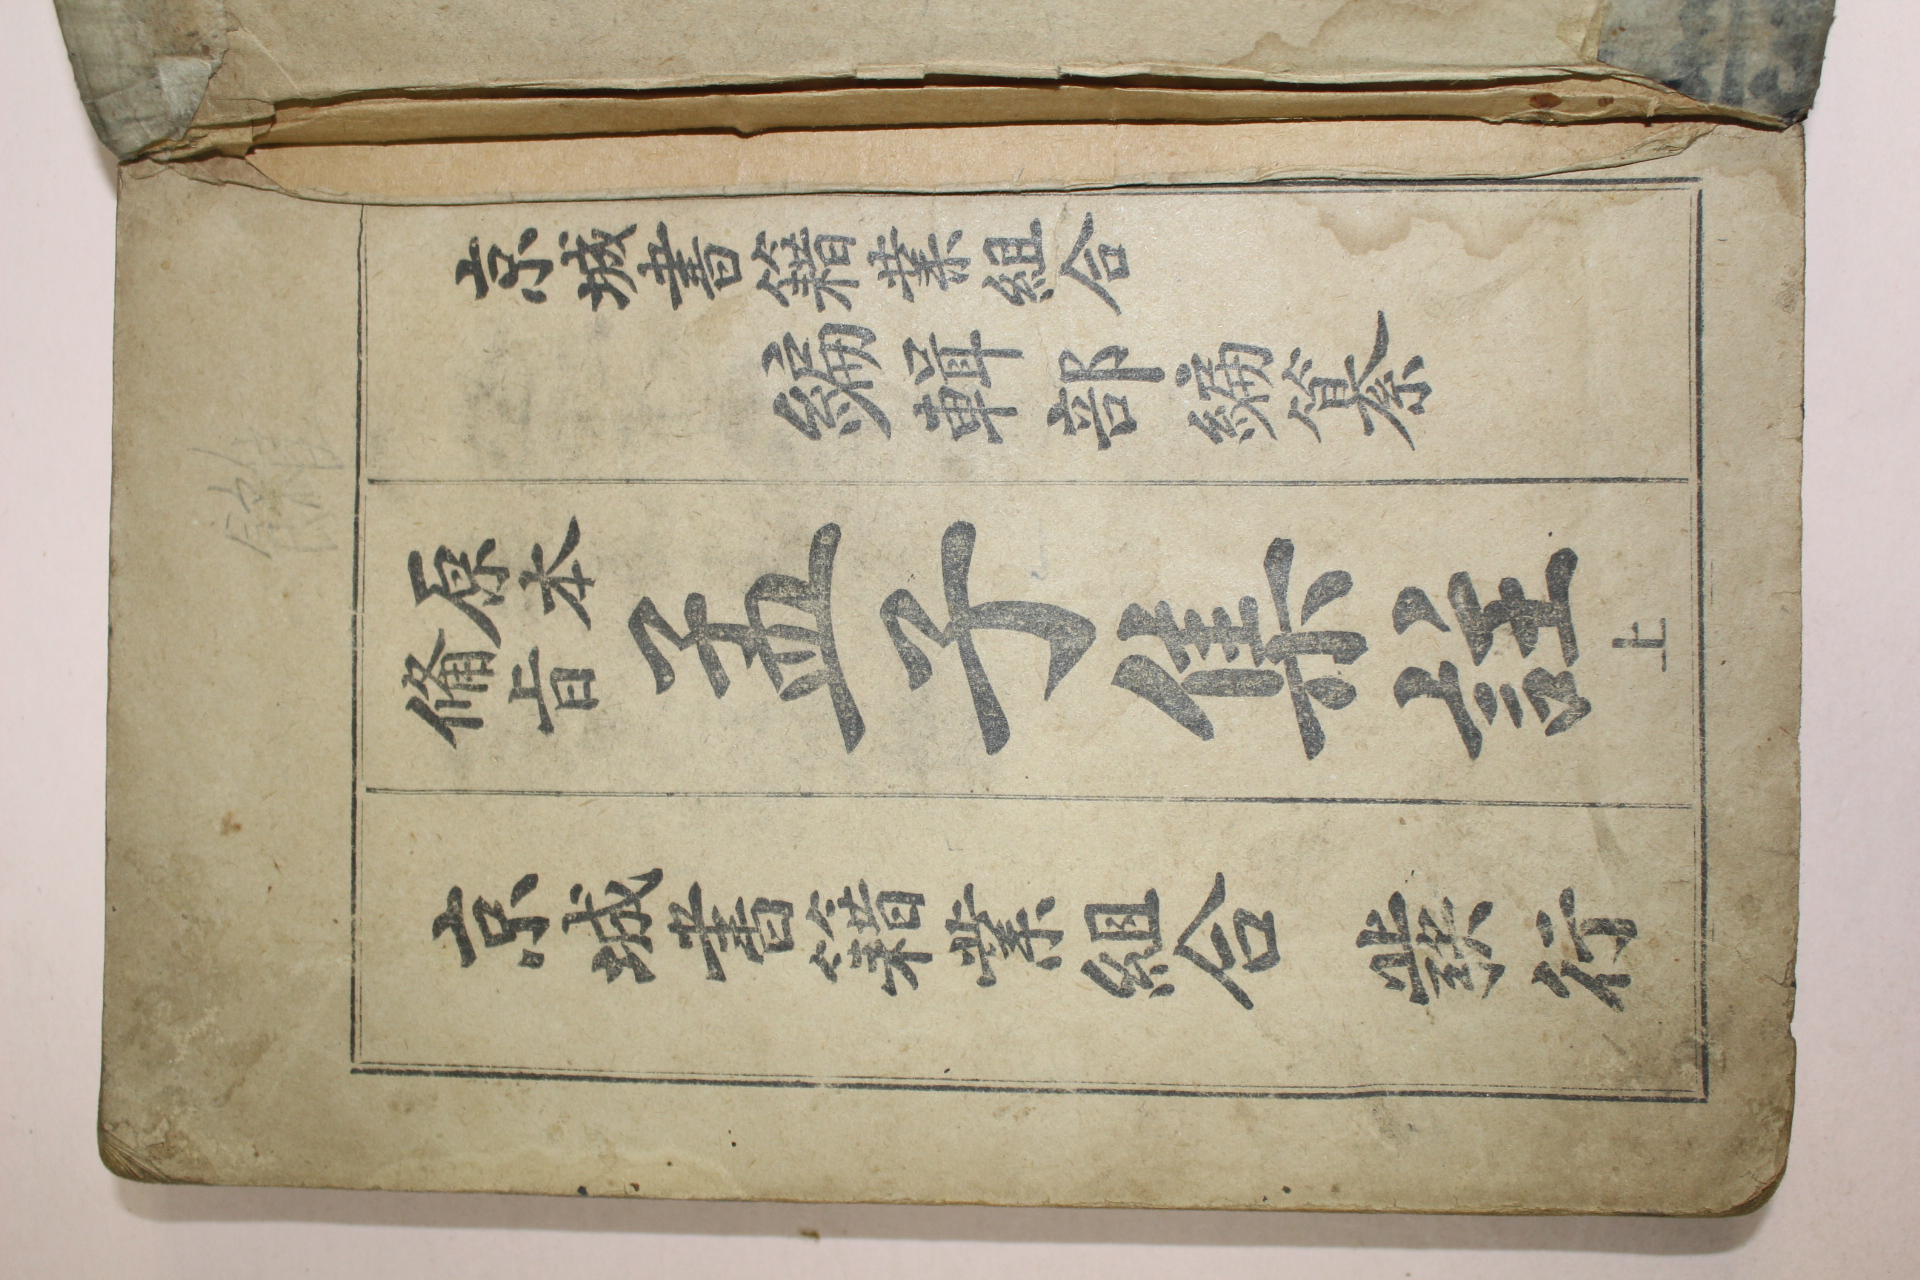 京城書籍業組合
編輯部編纂
原本
備旨
孟子集註上
京城書籍業組合 發行